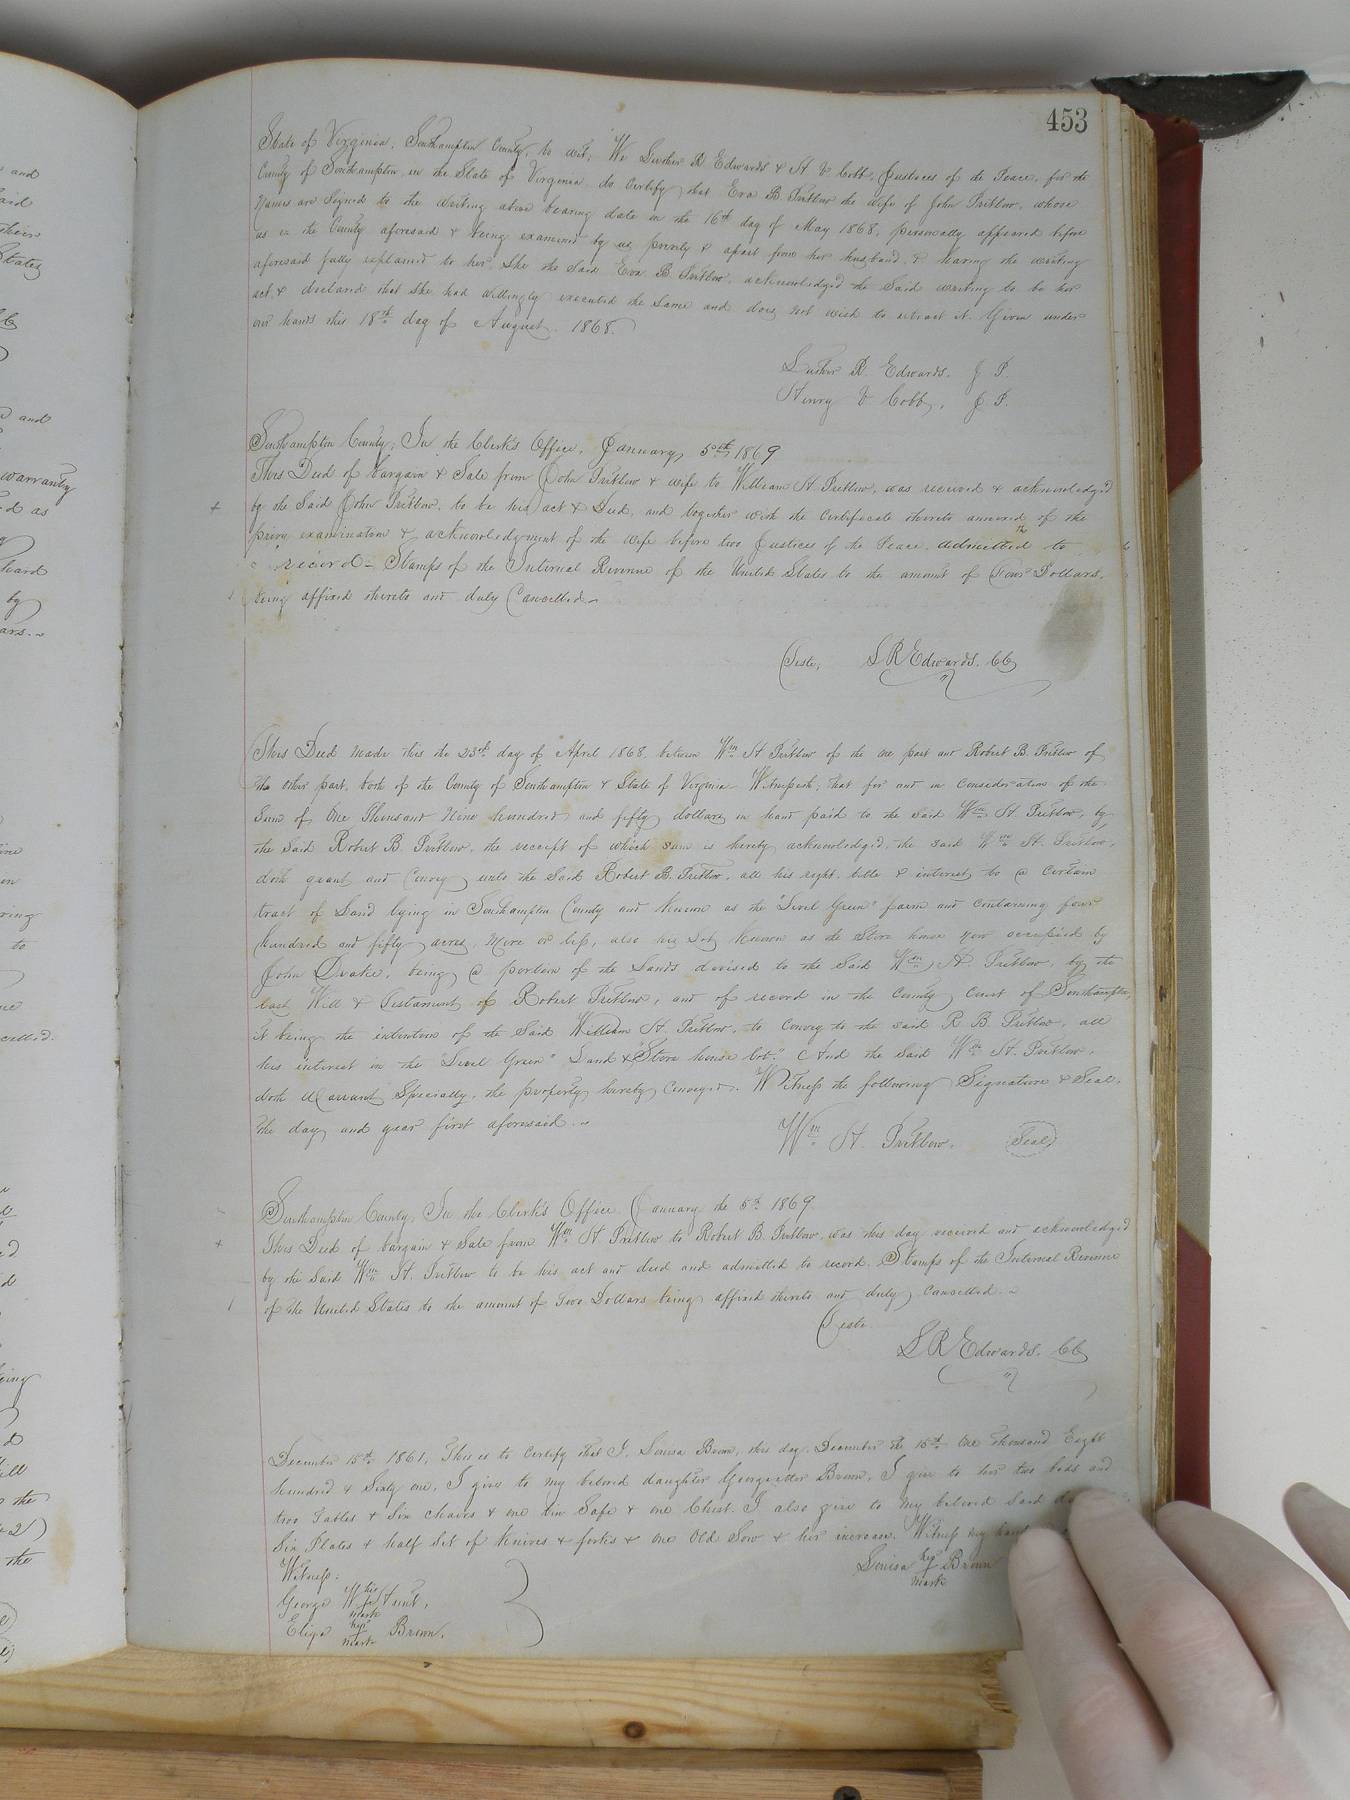 453
State of Virginia, Southampton County, to wit; We Luther R Edwards & H V Cobb, Justices of the Peace, for the
County of Southampton in the State of Virginia do certify that Eva B Pretlow the wife of John Pretlow, whose
Names are Signed to the writing above bearing date on the 16th day of May 1868, personally appeared before
us in the County aforesaid & being examined by us privily & apart from her husband & having the writing
aforesaid fully explained to her, She the said Eva B Pretlow, acknowledged the said writing to be her
act & declared that She had willingly executed the Same and does not wish to retract it. Given under
our hands this 18th day of August 1868.
Luther R. Edwards. J P.
Henry V Cobb, J. P.
Southampton County; In the Clerk's Office, January 5th 1869
This Deed of bargain & Sale from John Pretlow & wife to William H. Pretlow, was received & acknowledged
by the Said John Pretlow, to be his act & Deed, and together with the Certificate thereto annexed of the
privy examination & acknowledgment of the wife before two Justices of the Peace, admitted to
record = Stamps of the Internal Revenue of the United States to the amount of Four Dollars,
being affixed thereto and duly Cancelled.
Teste, L R Edwards. CC
This Deed made this the 23rd day of April 1868 between Wm H Pretlow of the one part and Robert B. Pretlow of
the other part, both of the County of Southampton & State of Virginia Witnesseth, that for and in consideration of the
Sum of One Thousand Nine hundred and fifty dollars in hand paid to the said Wm H. Pretlow, by
the said Robert B. Pretlow, the receipt of which sum is hereby acknowledged, the said Wm H. Pretlow,
doth grant and Convey unto the Said Robert B. Pretlow, all his right, title & interest to a certain
tract of Land lying in Southampton County and Known as the "Level Green" farm and Containing four
hundred and fifty acres, more or less, also his Lot Known as the Store house now occupied by
John Drake, being a portion of the Lands devised to the Said Wm H. Pretlow, by the
last Will & Testament of Robert Pretlow, and of record in the County Court of Southampton,
it being the intention of the Said William H. Pretlow, to Convey to the said R B. Pretlow, all
his interest in the "Level Green" Land & "Store house lot." And the said Wm H. Pretlow,
doth Warrant Specially, the property hereby Conveyed. Witness the following Signature & Seal.
the day and year first aforesaid.
Wm H. Pretlow. Seal
Southampton County, In the Clerk's Office January the 5th 1869.
This Deed of bargain & Sale from Wm H Pretlow to Robert B. Pretlow, was this day received and acknowledged
by the Said Wm H. Pretlow to be his act and deed and admitted to record. Stamps of the Internal Revenue
of the United States to the amount of Two Dollars being affixed thereto and duly Cancelled.
Teste
L R Edwards. CC
December 15th 1861, This is to Certify that I. Louisa Brown, this day December the 15th One thousand Eight
hundred & Sixty one, I give to my beloved daughter Georgietter Brown, I give to her two beds and
two Tables & Six chairs & one tin Safe & one Chest. I also give to my beloved Said
Six Plates & half Set of Knives & forks & one Old Sow & her increase. Witness my hand
Louisa her Brown
mark
Witness:
George W his
mark
Eliza her Brown.
mark